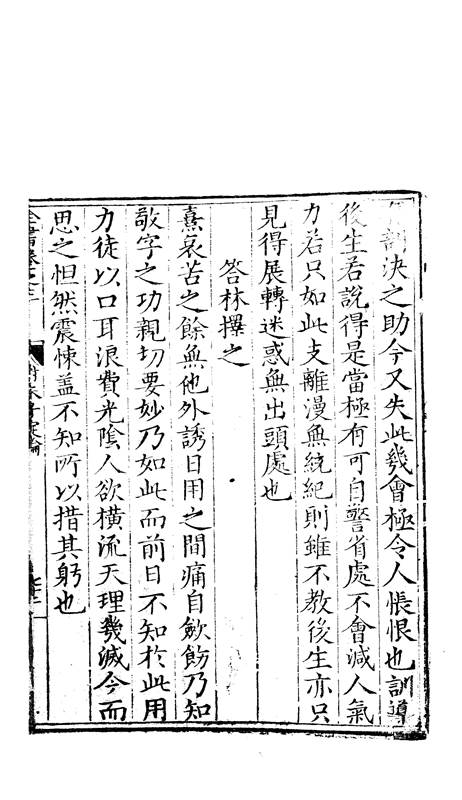 剖決之助今又失此幾會極令人悵恨也訓導
後生若說得是當極有可自警省處不會減人氣
力若只如此支離漫無統紀則雖不教後生亦只
見得展轉迷惑無出頭處也
答林擇之
熹哀苦之餘無他外誘日用之間痛自歛飭乃知
敬字之功親切要妙乃如此而前日不知於此用
力徒以口耳浪費光陰人欲橫流天理幾滅今而
思之怛然震悚盖不知所以措其躬也